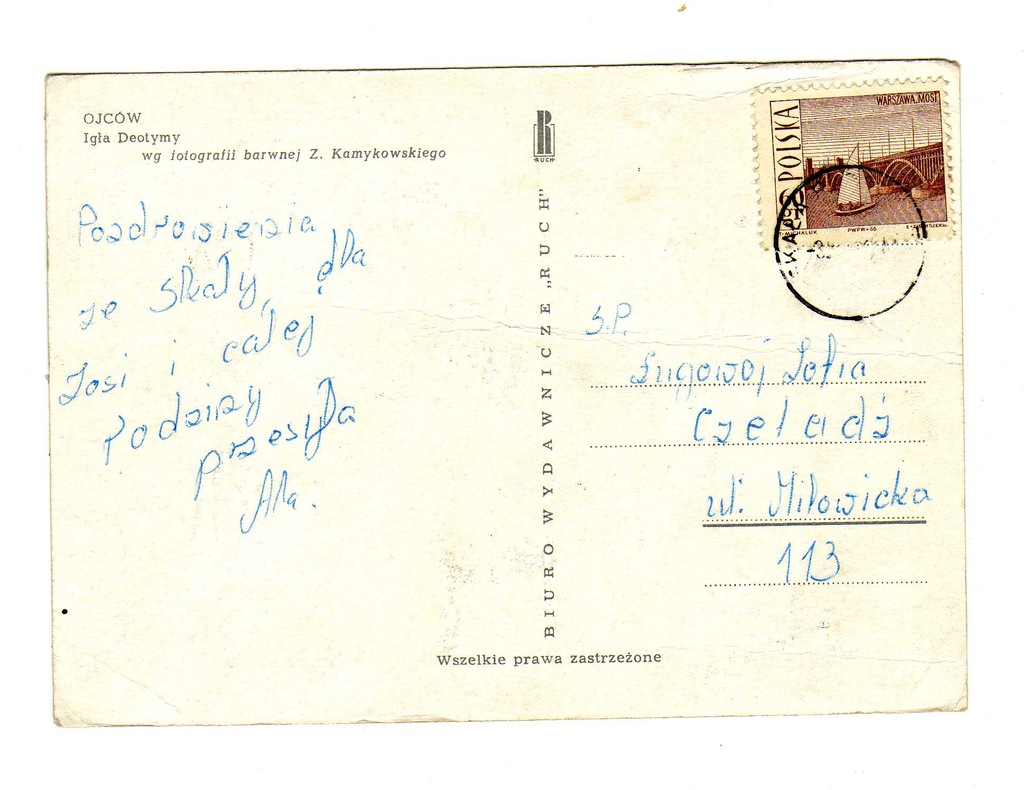 OJCÓW
Igła Deotymy
wg fotografii barwnej Z. Kamykowskiego
Pozdrowienia
ze Skały, dla
Zosi i całej
rodziny
przesyła
Ala.
RUCH
BIURO WYDAWNICZE „RUCH"
Wszelkie prawa zastrzeżone
WARSZAWA. MOST
POLSKA
PWPW-66
S.P.
Ługowoj Zofia
Czeladź
ul. Milowicka
113